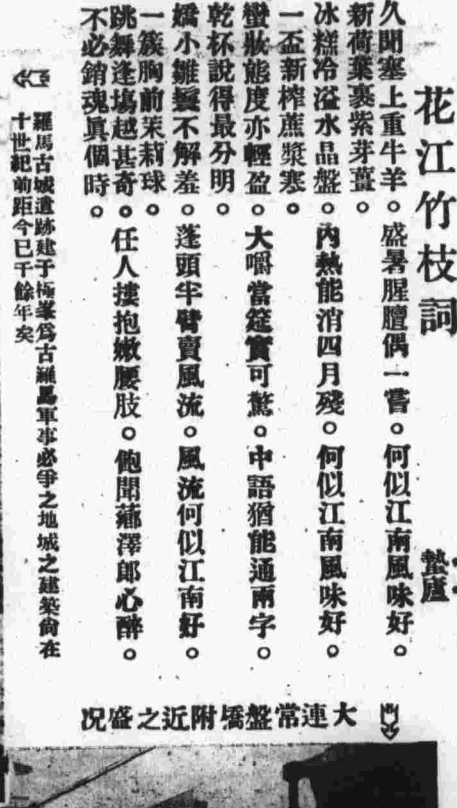 花江竹枝詞
蟄廬
久聞塞上重牛羊。盛暑腥膻偶一嘗。何似江南風味好。
新荷葉裹紫芽薑。
冰糕冷溢水晶盤。內熱能消四月殘。何似江南風味好。
一盃新榨蔗漿寒。
蠻妝態度亦輕盈。大嚼當筵實可驚。中語猶能通兩字。
乾杯說得最分明。
嬌小雛鬟不解羞。蓬頭半臂賣風流。風流何似江南好。
一簇胸前茉莉球。
跳舞逢場越甚奇。任人摟抱嫩腰肢。飽聞薌澤郎心醉。
不必銷魂眞個時。
羅馬古城遺跡建于極峯爲古羅馬軍事必爭之地城之建築尙在
十世紀前距今已千餘年矣
大連常盤橋附近之盛况